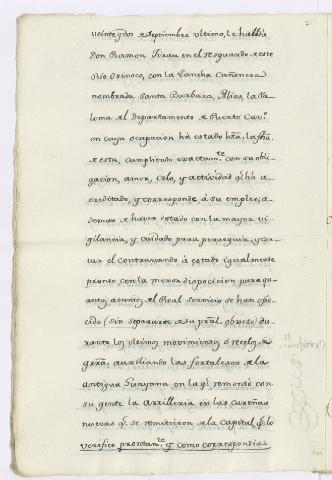 veinte y dos de Septiembre ultimo, le hallé á
Don Ramon Tirau en el resguardo de este
Rio Orinoco, con la Lancha Cañonera
nombrada Santa Barbara, Alias, la Pa-
loma del Departamento de Puerto Cav.º
en cuya ocupacion há estado hta. la fha.
de esta, cumpliendo exactamte. con su obli-
gacion, amor, celo, y actividad q.e há a-
creditado, y corresponde á su empleo; a-
demas de haver estado con la mayor vi-
gilancia, y cuidado para perseguir, y cor-
tar el Contravando á estado igualmente
pronto con la menor disposicion para qu-
antos asuntos del Real servicio se han ofre-
cido (sin separarse de su pral. objeto) du-
rante los ultimos movimientos ó recelos de
grra. auxiliando las fortalezas de la
antigua Guayana en la q.e remontó con
su gente la Artilleria en las cureñas
nuevas q.e se remitieron de la Capital, q.e lo
verificó prontamte. y como correspondia: